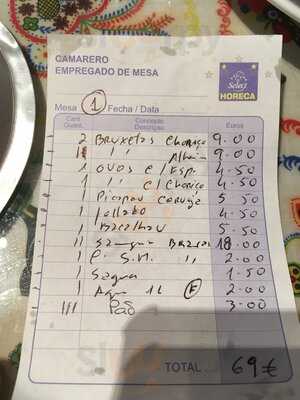 CAMARERO
EMPREGADO DE MESA
Select
HORECA
Mesa 1 Fecha / Data
Cant. Quant. Concepto Descrição Euros
2 Bruxetas Chouriço 9.00
11 11 9.00
1 OVOS C/ Esp. 4.50
1 11 C/ Chorico 4.50
1 Picapau 5 50
1 4.50
1 Bacalhau 5.50
11 18.00
1 P. S.M. 11 2.00
1 1.50
1 1L F 2.00
111 Pão 3.00
TOTAL 69€